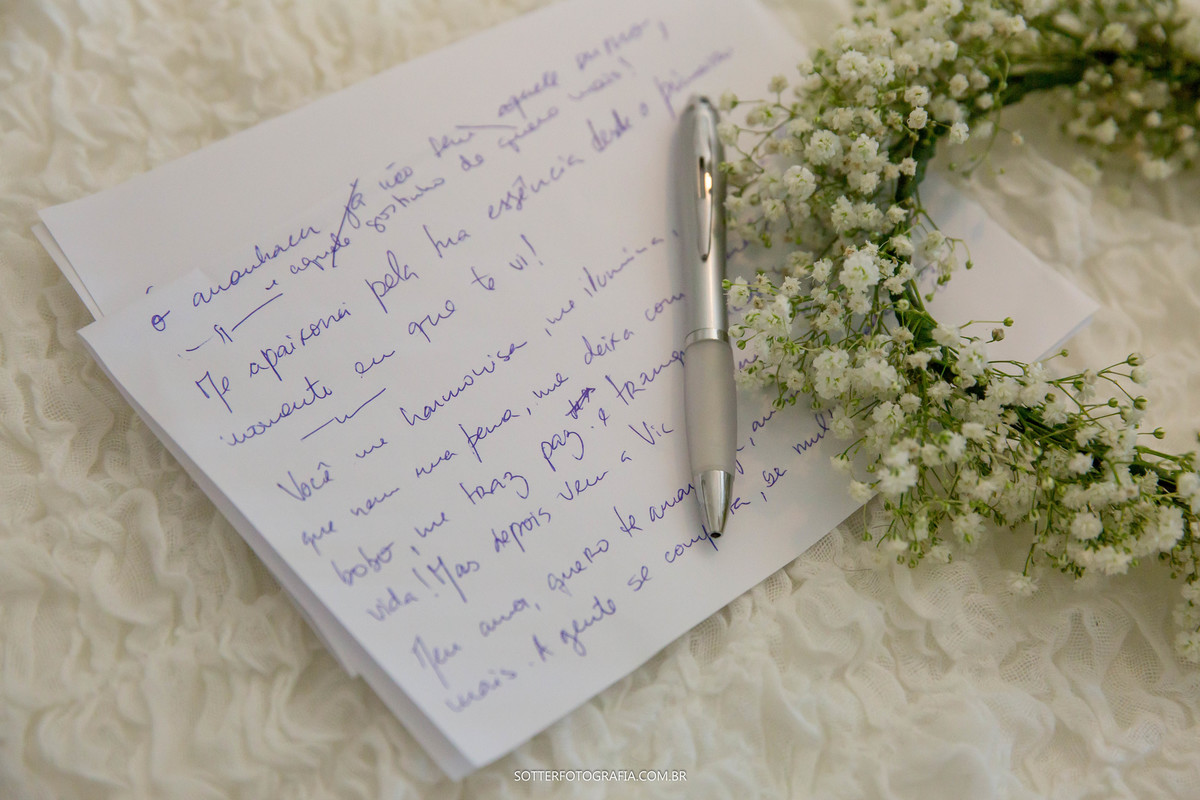 O amanhecer já não tem aquele
e aquele gostinho de quero mais!
Me apaixonei pela tua essência desde o primeiro
momento em que te vi!
Você me harmoniza, me ilumina,
que nem me deixa com
bobo, me traz paz e
vida! Mas depois vem a Vic
Meu amor, quero te amar
mais. A gente se comp , se
SOTTERFOTOGRAFIA.COM.BR